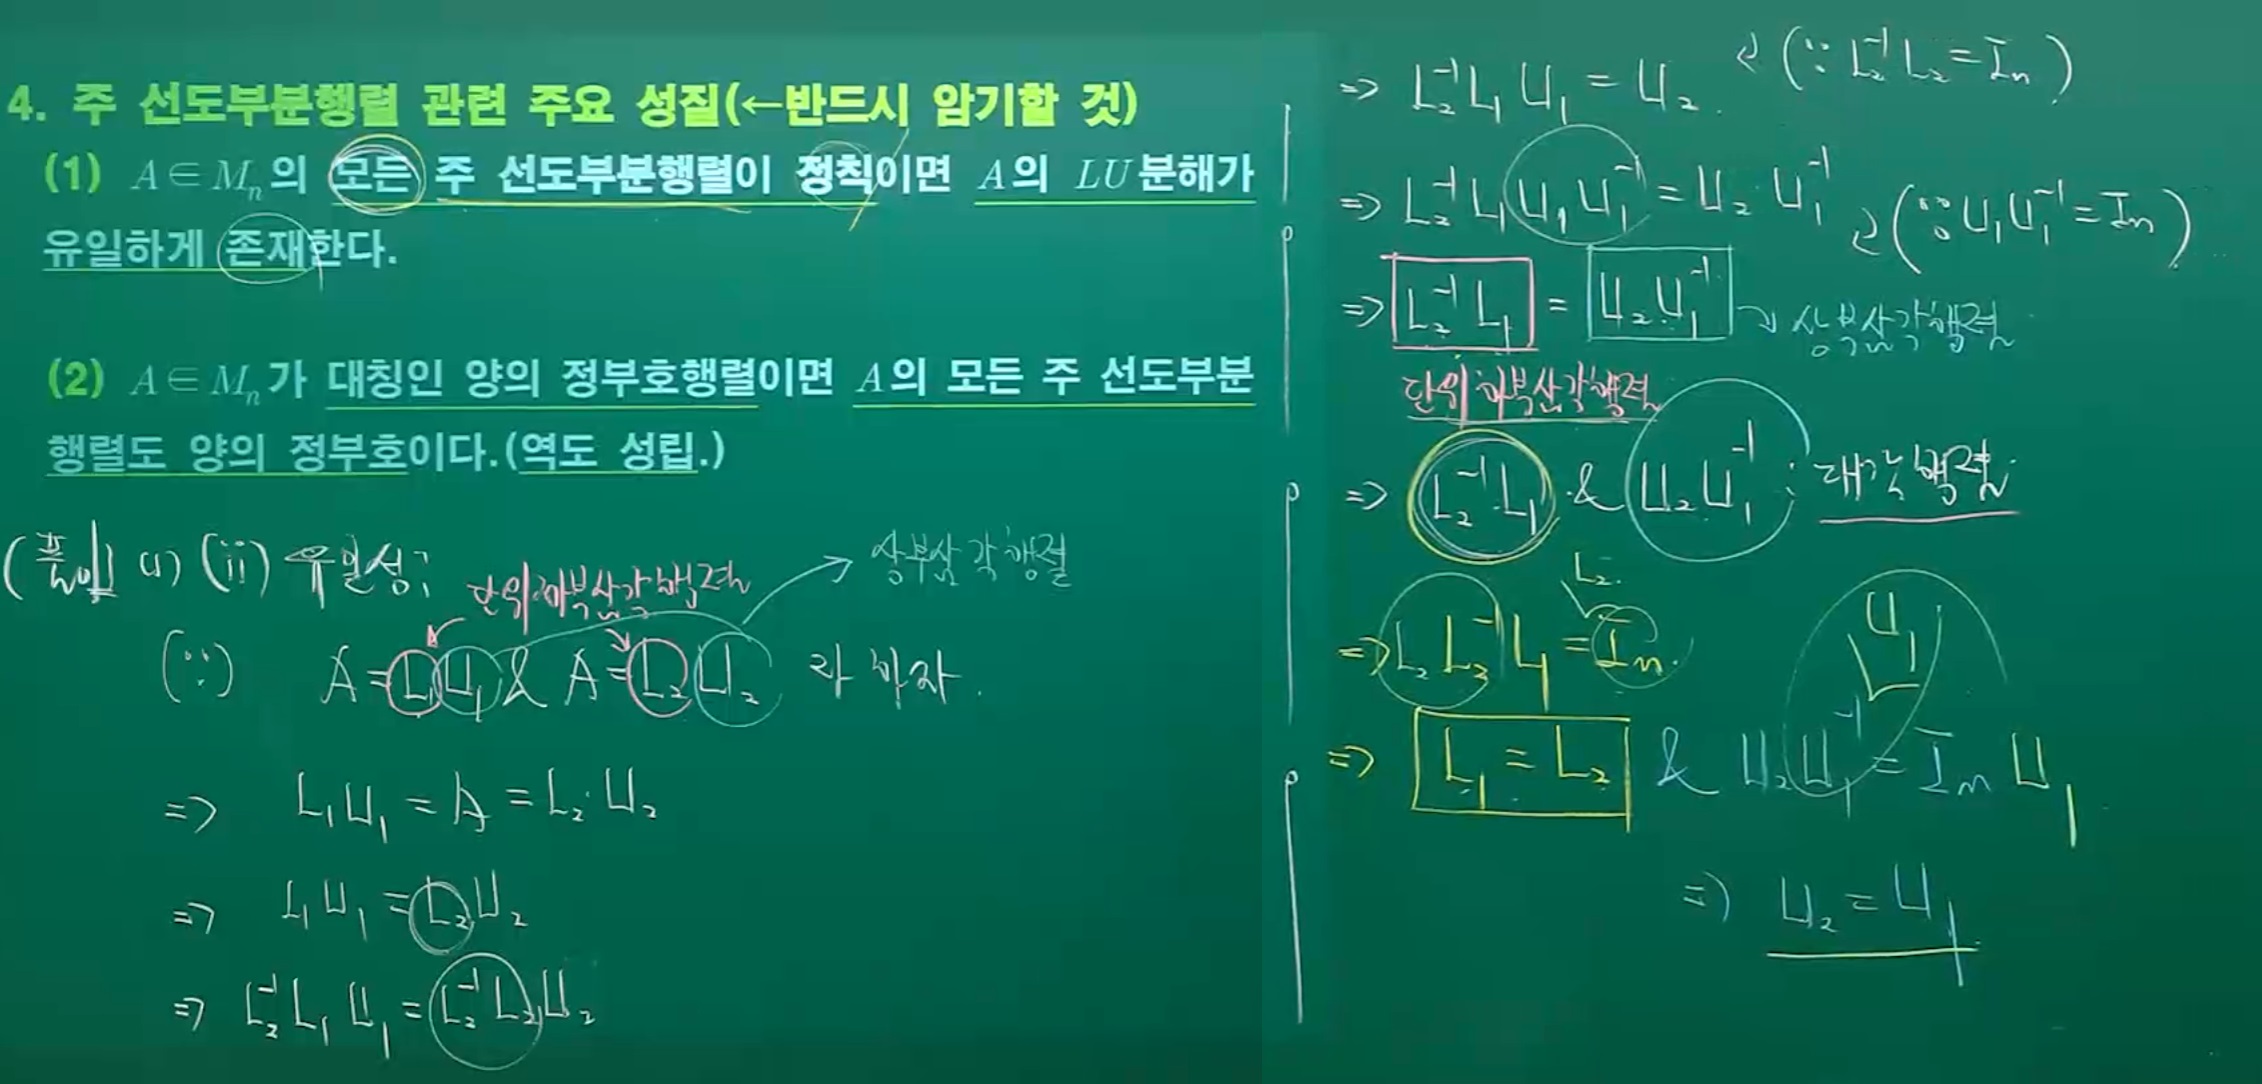 4. 주 선도부분행렬 관련 주요 성질(←반드시 암기할 것)
(1) A∈Mₙ의 모든 주 선도부분행렬이 정칙이면 A의 LU분해가
유일하게 존재한다.
(2) A∈Mₙ가 대칭인 양의 정부호행렬이면 A의 모든 주 선도부분
행렬도 양의 정부호이다.(역도 성립.)
(풀이) (1) (ii) 유일성;
단위하부삼각행렬
상부삼각행렬
(∵) A=L₁U₁ & A=L₂U₂ 라 하자.
⇒ L₁U₁ = A = L₂U₂
⇒ L₁U₁ = L₂U₂
⇒ L₂⁻¹L₁U₁ = L₂⁻¹L₂U₂
⇒ L₂⁻¹L₁U₁ = U₂. (∵ L₂⁻¹L₂ = Iₙ)
⇒ L₂⁻¹L₁U₁U₁⁻¹ = U₂U₁⁻¹ (∵ U₁U₁⁻¹ = Iₙ)
⇒ L₂⁻¹L₁ = U₂U₁⁻¹ → 상부삼각행렬
단위하부삼각행렬
⇒ L₂⁻¹L₁ & U₂U₁⁻¹ : 대각행렬
L₂.
⇒ L₂L₂⁻¹L₁ = Iₙ.
U₁
⇒ L₁ = L₂ & U₂U₁⁻¹ = Iₙ U₁
⇒ U₂ = U₁